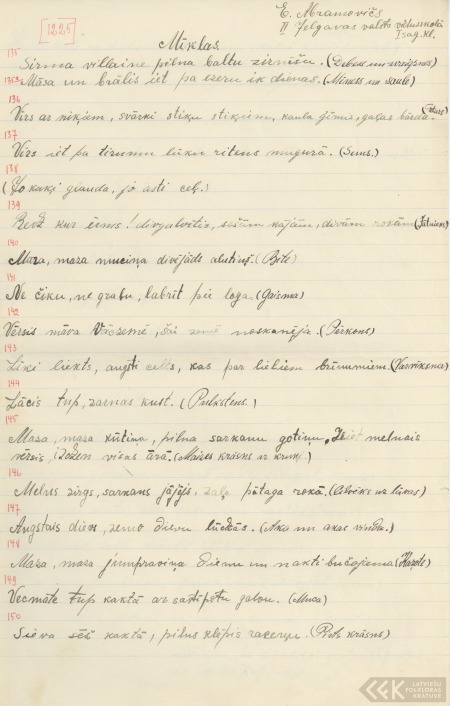 [1225]
E. Abramovičs
II Jelgavas valsts vidusskolā
I sag. kl.
Mīklas.
135
Sirma villaine pilna baltu zirnīšu. (Debess un zvaigznes)
135a
Māsa un brālis iet pa ezeru ik dienas. (Mēness un saule)
136
Vīrs ar ņiķiem, svārki stiķu stiķiem, kaula ģīmis, gaļas bārda. (Gailis)
137
Vīrs iet pa tīrumu lūku ritens mugurā. (Suns.)
138
(Jo kaķi glauda, jo asti ceļ.)
139
Redz kur ērms! divgalvītis, sešām kājām, divām rokām (Jātnieks)
140
Maza, maza muciņa divējāds alutiņš. (Ola)
141
Ne čiku, ne grabu, labrīt pie loga. (Gaisma)
142
Vērsis māva Vāczemē, šai zemē noskanēja. (Pērkons)
143
Līki liekts, augsti celts, kas par lieliem brīnumiem. (Varavīksna)
144
Lācis tup, zarnas kust. (Pulkstens.)
145
Maza, maza kūtiņa, pilna sarkanu gotiņu, Ieiet melnais
vērsis, izdzen visas ārā. (Maizes krāsns ar kruķi.)
146
Melns zirgs, sarkans jājējs, zaļa pātaga rokā.
147
Augstais dievs, zemo dievu lūdzās. (Aka un akas vinda.)
148
Maza, maza jumpraviņa dienu un nakti bučojama (Karote)
149
Vecmāte tup kaktā ar sastīpotu galvu. (Muca)
150
Sieva sēž kaktā, pilns klēpis raceņu.
LATVIEŠU
FOLKLORAS
KRĀTUVE